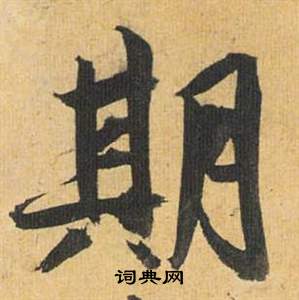 期
词典网